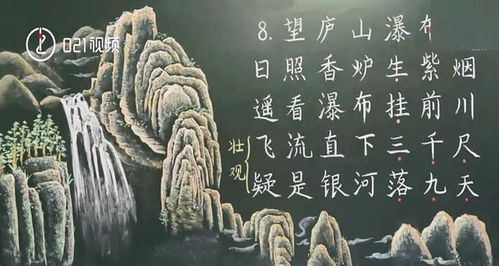 021视频
8. 望庐山瀑布
日照香炉生紫烟
遥看瀑布挂前川
飞流直下三千尺
疑是银河落九天
壮观